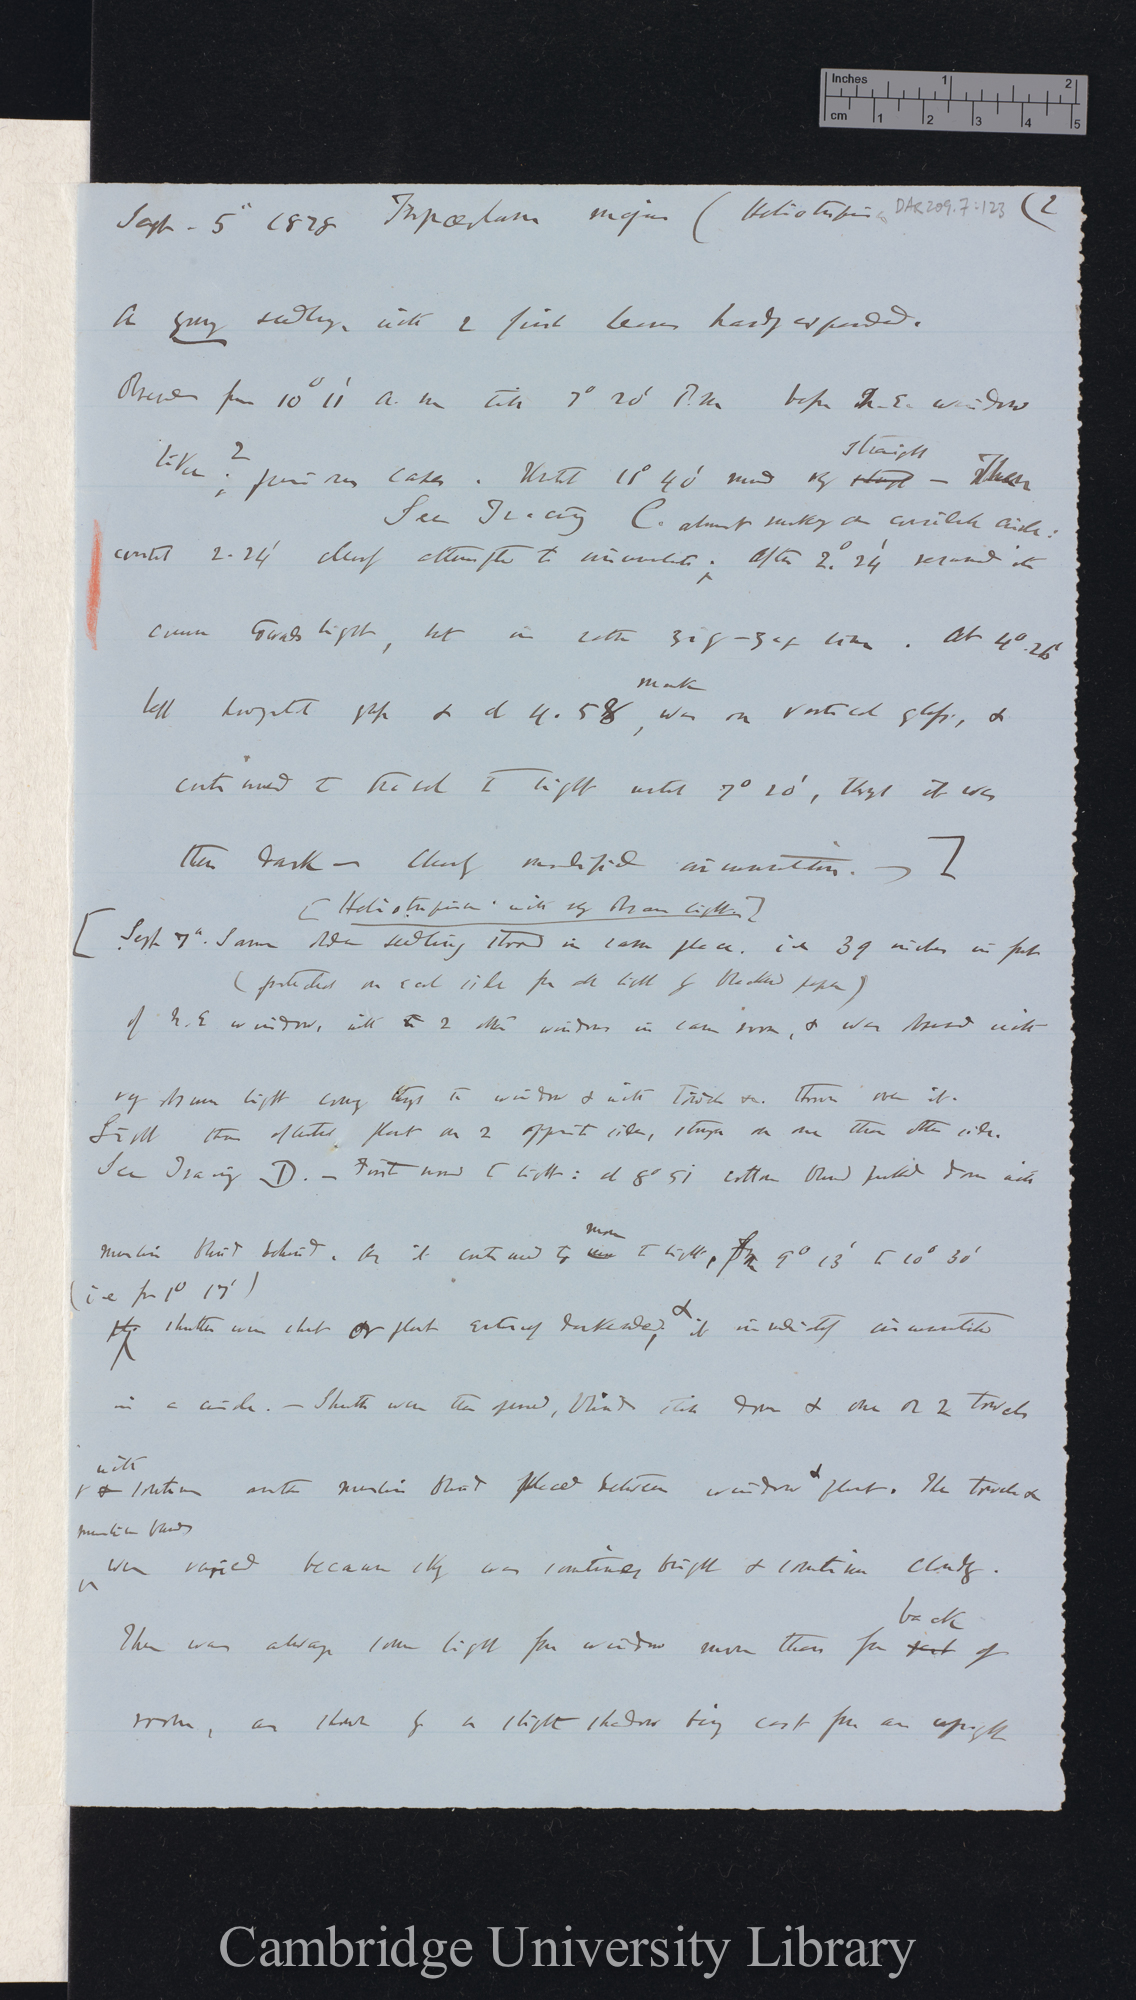 Inches 1 2
cm 1 2 3 4 5
Sept. 5th 1878 Tropæolum majus (Heliotropism DAR 209.7:123 (2
A young seedling, with 2 first leaves hardly expanded.
Observed from 10° 11' a.m till 7° 20' P.m before N.E. window
like 2 previous cases. Until 11° 40' moved very straight — Then
See Tracing C. almost making a complete circle:
until 2.24' clearly attempted to circumnutate; after 2° 24' resumed its
course towards light, but in rather zig-zag line. At 4°.26'
left horizontal glass & at 4.58, mark was on vertical glass, &
continued to travel to light until 7° 20', though it was
then dark — Clearly modified circumnutation. —]
[Heliotropism with very obscure light]
[Sept 7th. Same older seedling stood in same place. i.e 39 inches in front
(protected on each side from all light by blackened paper)
of N.E window, with 2 other windows in same room, & was observed with
very obscure light coming through the window & with towels &c. thrown over it.
Light thus affected plant on 2 opposite sides, stronger on one than other side.
See Tracing D. — First moved to light: at 8° 51 cotton blind pulled down with
muslin blind behind. As it continued to move to light, from 9° 13' to 10° 30'
(i.e for 1° 17')
shutters were shut & plant entirely darkened, & it immediately circumnutated
in a circle. — Shutters were then opened, blinds still down & one or 2 towels
with & sometimes another muslin blind placed between window & plant. The towels &
muslin blinds
were varied because sky was sometimes bright & sometimes cloudy.
There was always some light from window more than from back of
room, as shown by a slight shadow being cast from an upright
Cambridge University Library